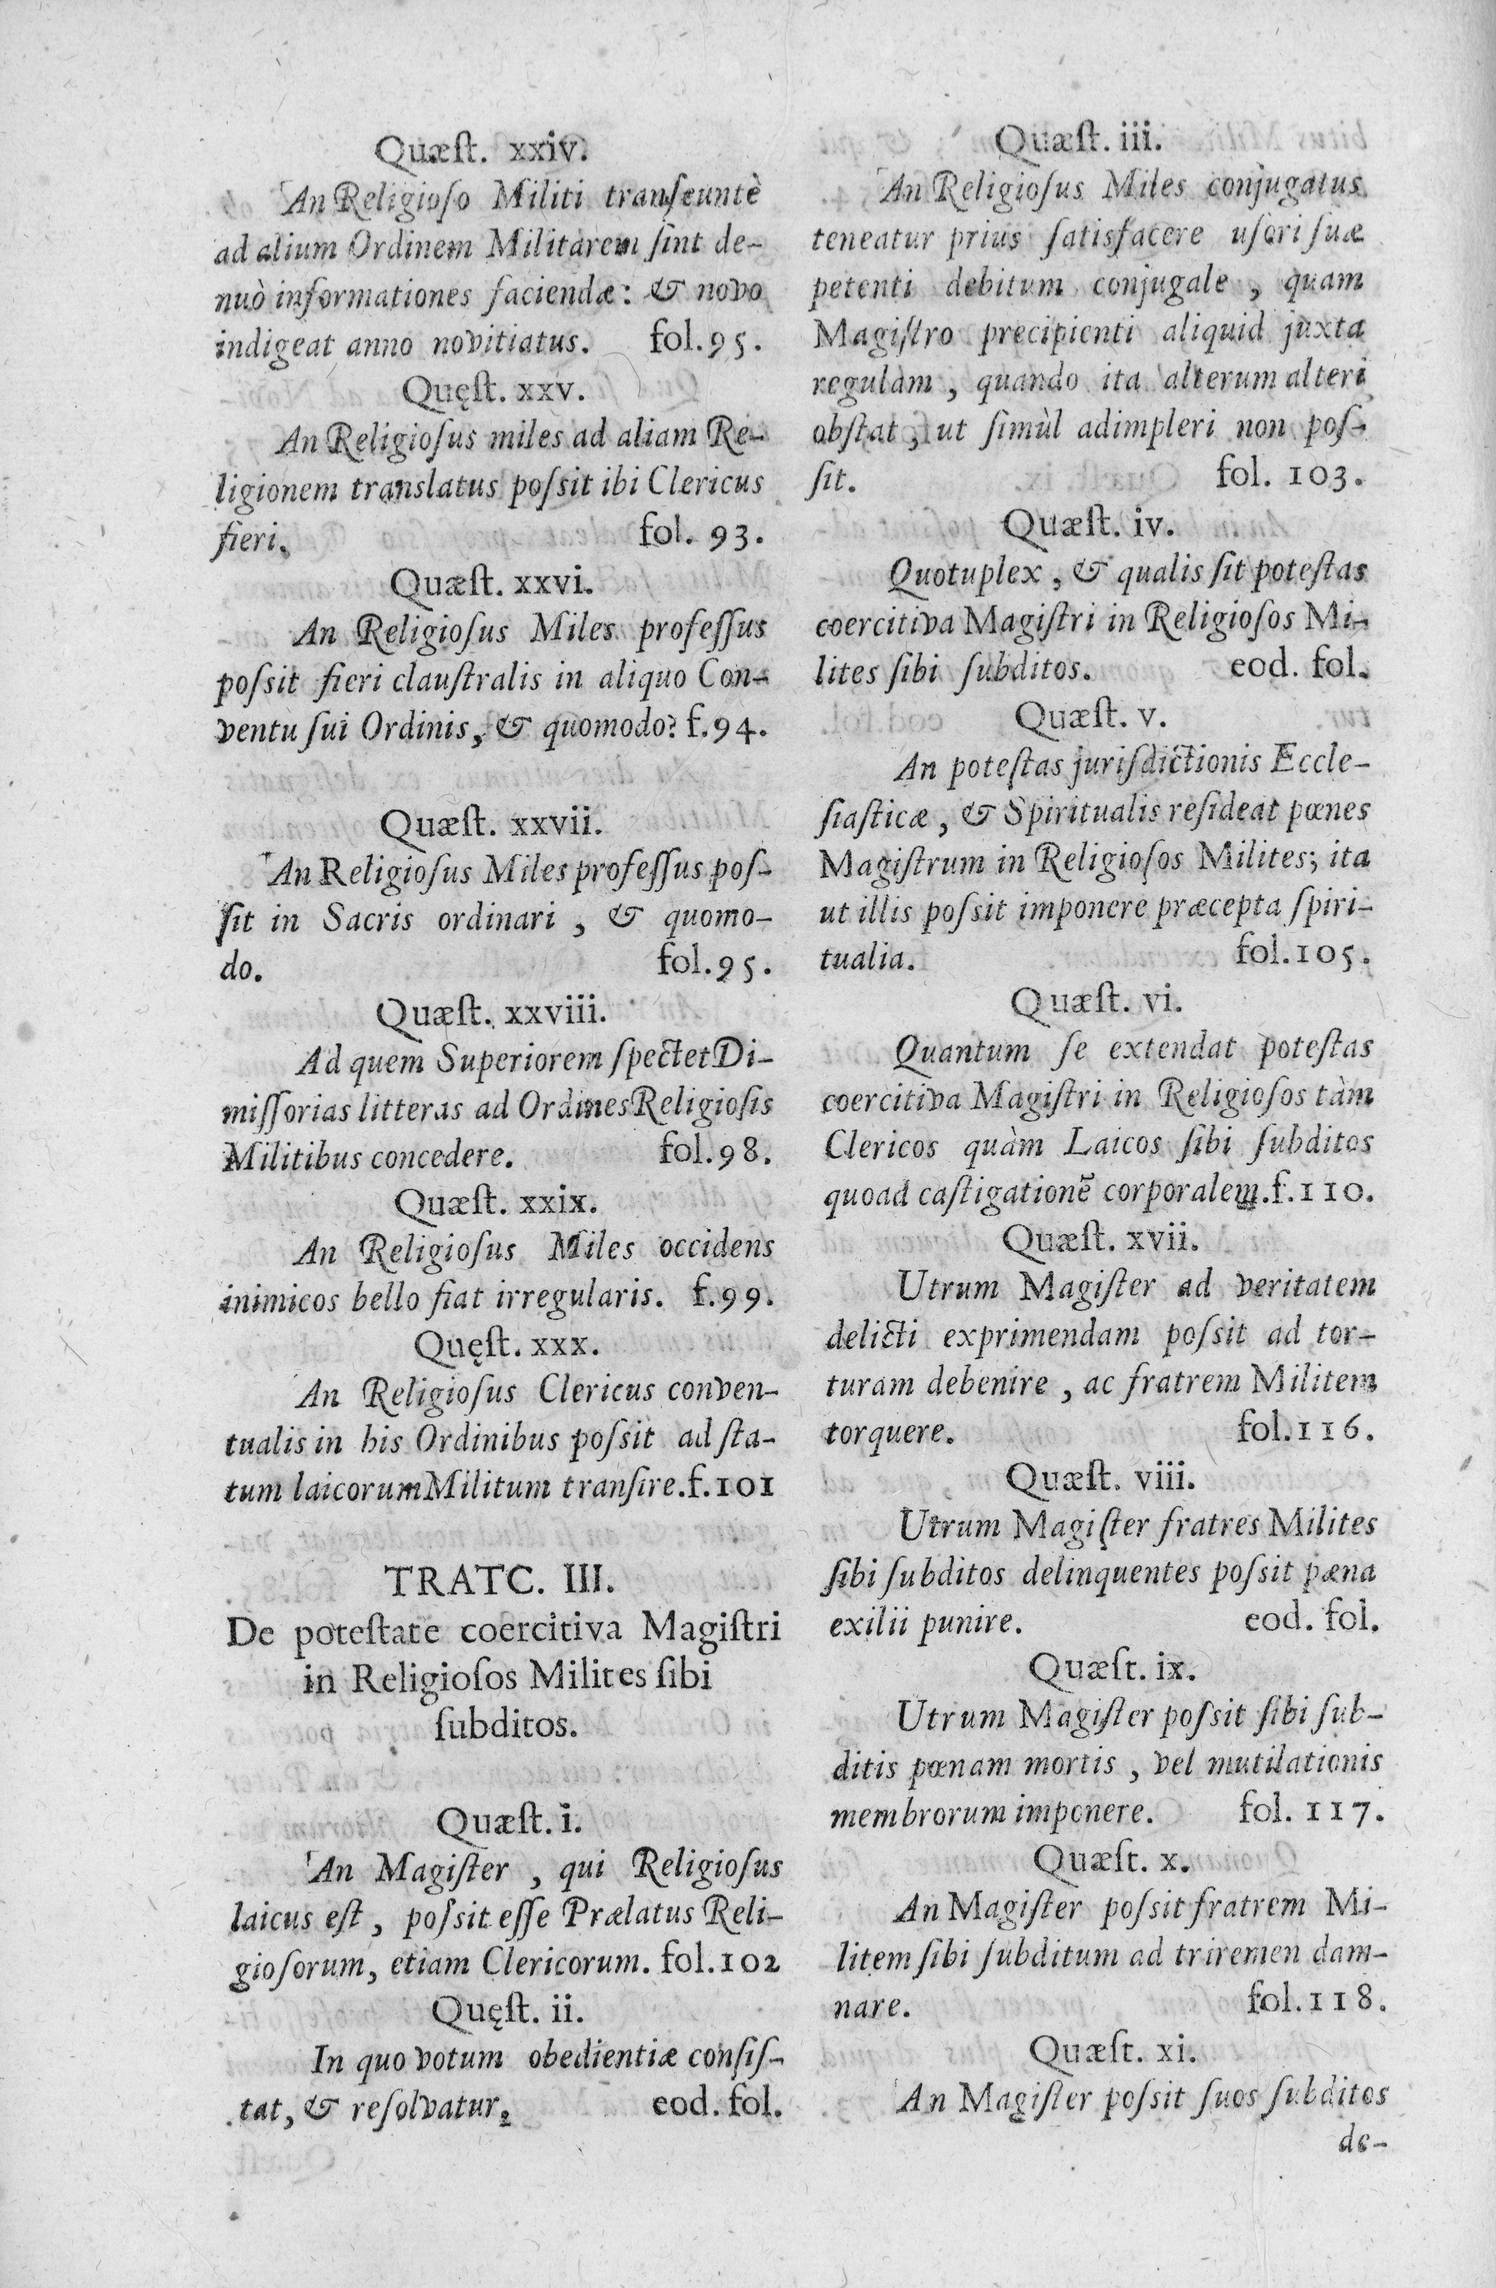 Quæſt. xxiv.
An Religioſo Militi tranſeuntè
ad alium Ordinem Militarem ſint de-
nuò informationes faciendæ: & novo
indigeat anno novitiatus. fol. 95.
Quęſt. xxv.
An Religioſus miles ad aliam Re-
ligionem translatus poſsit ibi Clericus
fieri. fol. 93.
Quæſt. xxvi.
An Religioſus Miles profeſſus
poſsit fieri clauſtralis in aliquo Con-
ventu ſui Ordinis, & quomodo? f.94.
Quæſt. xxvii.
An Religioſus Miles profeſſus poſ-
ſit in Sacris ordinari, & quomo-
do. fol.95.
Quæſt. xxviii.
Ad quem Superiorem ſpectet Di-
miſſorias litteras ad Ordines Religioſis
Militibus concedere. fol.98.
Quæſt. xxix.
An Religioſus Miles occidens
inimicos bello fiat irregularis. f.99.
Quęſt. xxx.
An Religioſus Clericus conven-
tualis in his Ordinibus poſsit ad ſta-
tum laicorum Militum tranſire. f.101
TRATC. III.
De poteſtate coercitiva Magiſtri
in Religioſos Milites ſibi
ſubditos.
Quæſt. i.
An Magiſter, qui Religioſus
laicus eſt, poſsit eſſe Prælatus Reli-
gioſorum, etiam Clericorum. fol.102
Quęſt. ii.
In quo votum obedientiæ conſiſ-
tat, & reſolvatur. eod. fol.
Quæſt. iii.
An Religioſus Miles conjugatus
teneatur prius ſatisfacere uſori ſuæ
petenti debitum conjugale, quam
Magiſtro precipienti aliquid juxta
regulam, quando ita alterum alteri
obſtat, ut ſimùl adimpleri non poſ-
ſit. fol. 103.
Quæſt. iv.
Quotuplex, & qualis ſit poteſtas
coercitiva Magiſtri in Religioſos Mi-
lites ſibi ſubditos. eod. fol.
Quæſt. v.
An poteſtas jurisdictionis Eccle-
ſiaſticæ, & Spiritualis reſideat pœnes
Magiſtrum in Religioſos Milites; ita
ut illis poſsit imponere præcepta ſpiri-
tualia. fol.105.
Quæſt. vi.
Quantum ſe extendat poteſtas
coercitiva Magiſtri in Religioſos tàm
Clericos quàm Laicos ſibi ſubditos
quoad caſtigationē corporalem. f.110.
Quæſt. xvii.
Utrum Magiſter ad veritatem
delicti exprimendam poſsit ad tor-
turam debenire, ac fratrem Militem
torquere. fol.116.
Quæſt. viii.
Utrum Magiſter fratres Milites
ſibi ſubditos delinquentes poſsit pæna
exilii punire. eod. fol.
Quæſt. ix.
Utrum Magiſter poſsit ſibi ſub-
ditis pœnam mortis, vel mutilationis
membrorum imponere. fol. 117.
Quæſt. x.
An Magiſter poſsit fratrem Mi-
litem ſibi ſubditum ad triremen dam-
nare. fol.118.
Quæſt. xi.
An Magiſter poſsit ſuos ſubditos
de-